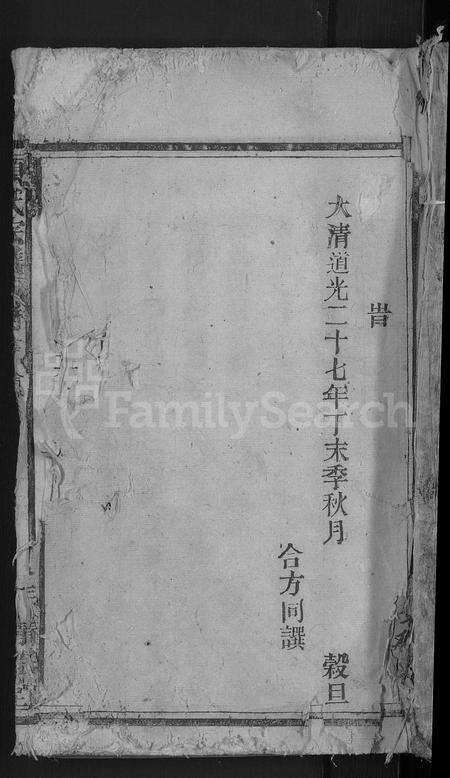 旹
大清道光二十七年丁未季秋月 穀旦
合方同譔
FamilySearch